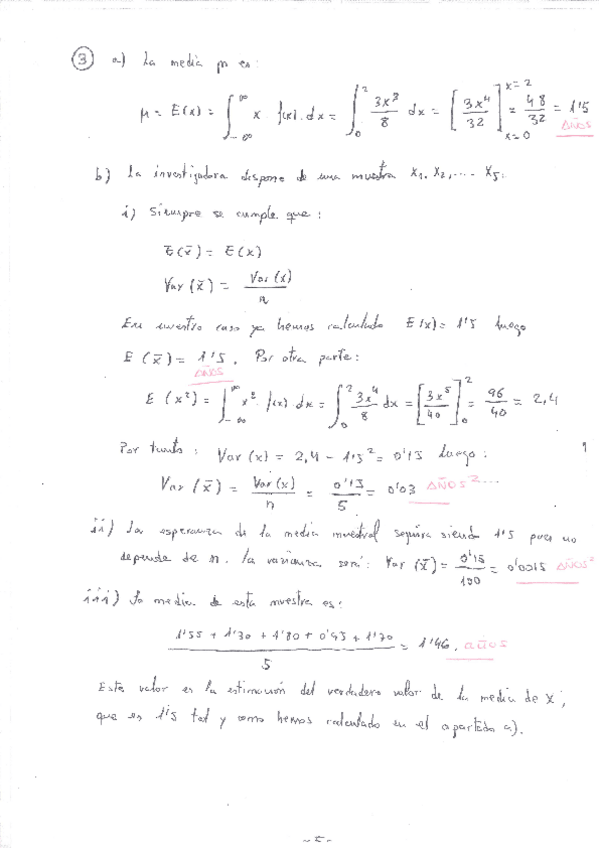 ③ a) La media μ es:
μ = E(x) = ∫_{-∞}^{∞} x · f(x) · dx = ∫_0^2 3x³/8 dx = [3x⁴/32]_{x=0}^{x=2} = 48/32 = 1'5 AÑOS
b) La investigadora dispone de una muestra X₁, X₂, .... X₅.
i) Siempre se cumple que:
E(x̄) = E(x)
Var(x̄) = Var(x)/n
En nuestro caso ya hemos calculado E(x) = 1'5 luego
E(x̄) = 1'5. Por otra parte:
AÑOS
E(x²) = ∫_{-∞}^{∞} x² · f(x) · dx = ∫_0^2 3x⁴/8 dx = [3x⁵/40]_0^2 = 96/40 = 2,4
Por tanto: Var(x) = 2,4 - 1'5² = 0'15 luego:
Var(x̄) = Var(x)/n = 0'15/5 = 0'03 AÑOS²...
ii) La esperanza de la media muestral seguirá siendo 1'5 pues no
depende de n. La varianza será: Var(x̄) = 0'15/100 = 0'0015 AÑOS²
iii) La media de esta muestra es:
(1'55 + 1'30 + 1'80 + 0'95 + 1'70)/5 = 1'46. años
Este valor es la estimación del verdadero valor de la media de X,
que es 1'5 tal y como hemos calculado en el apartado a).
-5-